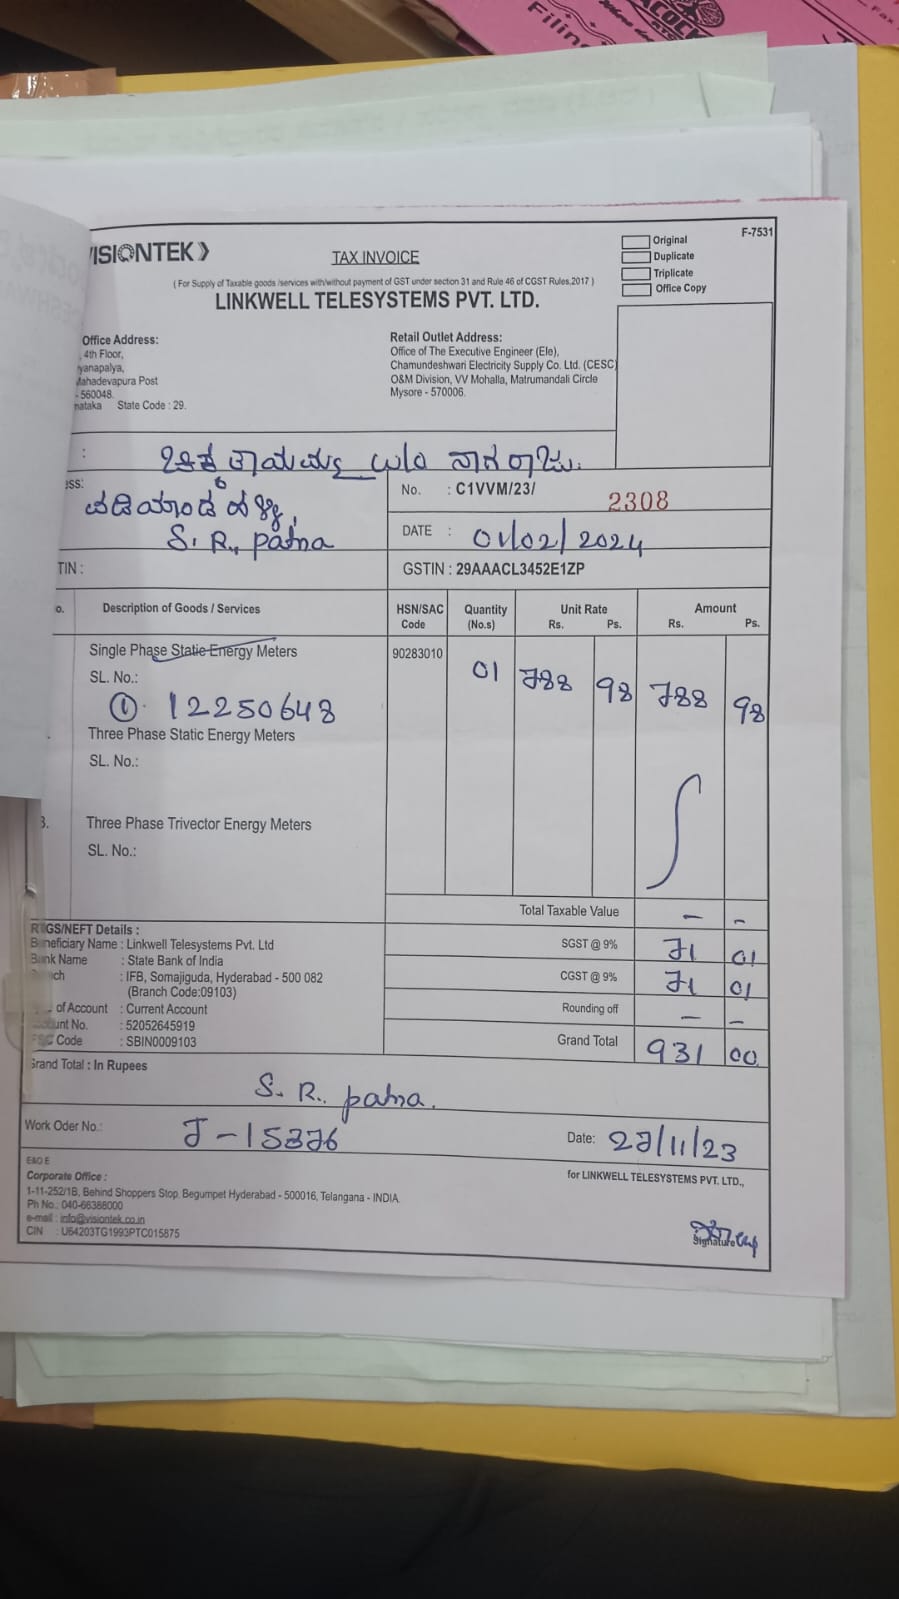 Filing
VISIONTEK
TAX INVOICE
Original
Duplicate
Triplicate
Office Copy
F-7531
( For Supply of Taxable goods /services with/without payment of GST under section 31 and Rule 46 of CGST Rules,2017 )
LINKWELL TELESYSTEMS PVT. LTD.
Office Address:
4th Floor,
yanapalya,
Mahadevapura Post
- 560048.
nataka State Code : 29.
Retail Outlet Address:
Office of The Executive Engineer (Ele),
Chamundeshwari Electricity Supply Co. Ltd. (CESC)
O&M Division, VV Mohalla, Matrumandali Circle
Mysore - 570006.
: ಚಿಕ್ಕತಾಯಮ್ಮ ನಾಗರಾಜು.
ess:
S. R., patna
No. : C1VVM/23/ 2308
DATE : 01/02/2024
TIN :
GSTIN : 29AAACL3452E1ZP
o. Description of Goods / Services HSN/SAC Code Quantity (No.s) Unit Rate Rs. Ps. Amount Rs. Ps.
Single Phase Static Energy Meters 90283010 01 788 98 788 98
SL. No.:
① 12250648
Three Phase Static Energy Meters
SL. No.:
3. Three Phase Trivector Energy Meters
SL. No.:
Total Taxable Value — -
SGST @ 9% 71 01
CGST @ 9% 71 01
Rounding off — -
Grand Total 931 00
RTGS/NEFT Details :
Beneficiary Name : Linkwell Telesystems Pvt. Ltd
Bank Name : State Bank of India
: IFB, Somajiguda, Hyderabad - 500 082
(Branch Code:09103)
of Account : Current Account
ount No. : 52052645919
Code : SBIN0009103
Grand Total : In Rupees
S. R., patna.
Work Oder No.: J-15376
Date: 27/11/23
E&O E
Corporate Office :
1-11-252/1B, Behind Shoppers Stop. Begumpet Hyderabad - 500016, Telangana - INDIA.
Ph No.: 040-66388000
e-mail : info@visiontek.co.in
CIN : U64203TG1993PTC015875
for LINKWELL TELESYSTEMS PVT. LTD.,
Signature